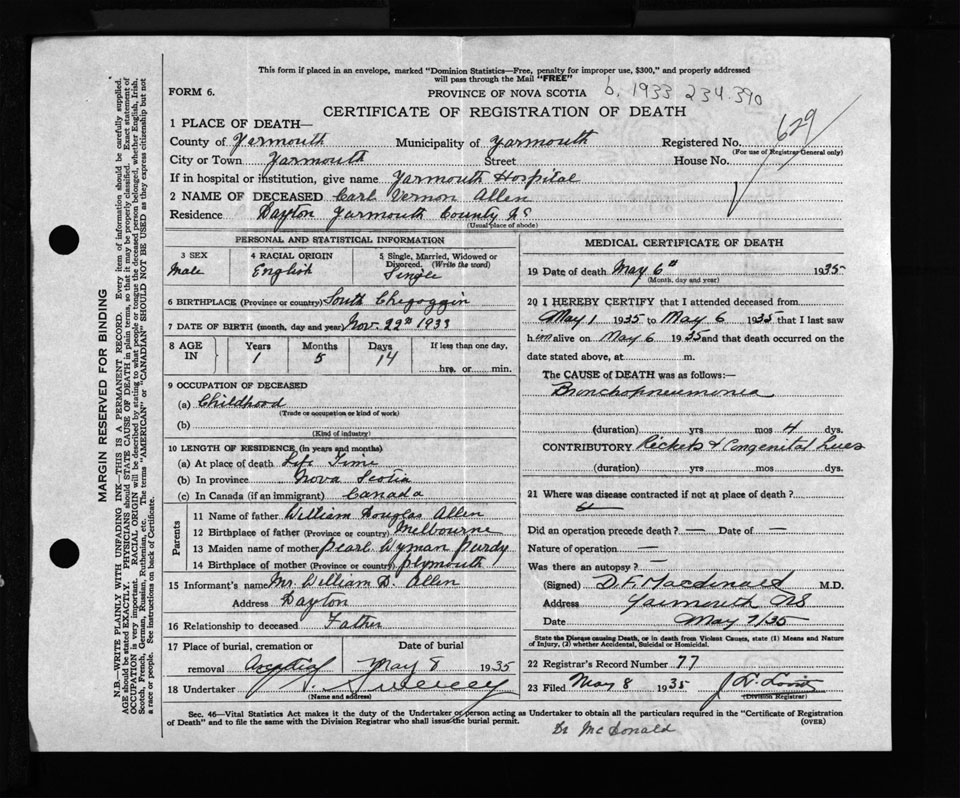 This form if placed in an envelope, marked "Dominion Statistics—Free, penalty for improper use, $300," and properly addressed
will pass through the Mail "FREE"
FORM 6.
PROVINCE OF NOVA SCOTIA
b. 1933 234-390
CERTIFICATE OF REGISTRATION OF DEATH
629
1 PLACE OF DEATH—
County of Yarmouth Municipality of Yarmouth Registered No.
(For use of Registrar General only)
City or Town Yarmouth Street House No.
If in hospital or institution, give name Yarmouth Hospital
2 NAME OF DECEASED Carl Vernon Allen
Residence Dayton Yarmouth County NS
(Usual place of abode)
PERSONAL AND STATISTICAL INFORMATION
3 SEX 4 RACIAL ORIGIN 5 Single, Married, Widowed or Divorced. (Write the word)
Male English Single
6 BIRTHPLACE (Province or country) South Chegoggin
7 DATE OF BIRTH (month, day and year) Nov. 22nd 1933
8 AGE IN Years Months Days If less than one day,
1 5 14 hrs. or min.
9 OCCUPATION OF DECEASED
(a) Childhood
(Trade or occupation or kind of work)
(b)
(Kind of industry)
10 LENGTH OF RESIDENCE (in years and months)
(a) At place of death Life Time
(b) In province Nova Scotia
(c) In Canada (if an immigrant) Canada
Parents
11 Name of father William Douglas Allen
12 Birthplace of father (Province or country) Melbourne
13 Maiden name of mother Pearl Wyman Purdy
14 Birthplace of mother (Province or country) Plymouth
15 Informant's name Mr. William D. Allen
Address Dayton
16 Relationship to deceased Father
17 Place of burial, cremation or removal Date of burial
May 8 1935
18 Undertaker Sweeney
(Name and address)
MEDICAL CERTIFICATE OF DEATH
19 Date of death May 6th 1935
(Month, day and year)
20 I HEREBY CERTIFY that I attended deceased from
May 1 1935 to May 6 1935 that I last saw
him alive on May 6 1935 and that death occurred on the
date stated above, at m.
The CAUSE of DEATH was as follows:—
Bronchopneumonia
(duration) yrs mos 4 dys.
CONTRIBUTORY Rickets & Congenital Lues
(duration) yrs mos dys.
21 Where was disease contracted if not at place of death?
Did an operation precede death? — Date of —
Nature of operation —
Was there an autopsy? —
(Signed) D. F. Macdonald M.D.
Address Yarmouth NS
Date May 7/35
State the Disease causing Death, or in death from Violent Causes, state (1) Means and Nature
of Injury, (2) whether Accidental, Suicidal or Homicidal.
22 Registrar's Record Number 77
23 Filed May 8 1935
(Division Registrar)
Sec. 46—Vital Statistics Act makes it the duty of the Undertaker or person acting as Undertaker to obtain all the particulars required in the "Certificate of Registration
of Death" and to file the same with the Division Registrar who shall issue the burial permit.
(OVER)
Dr McDonald
MARGIN RESERVED FOR BINDING
N.B.—WRITE PLAINLY WITH UNFADING INK—THIS IS A PERMANENT RECORD. Every item of information should be carefully supplied.
AGE should be stated EXACTLY. PHYSICIANS should STATE CAUSE OF DEATH in plain terms, so that it may be properly classified. Exact statement of
OCCUPATION is very important. RACIAL ORIGIN will be described by stating to what people or tongue the deceased person belonged, whether English, Irish,
Scotch, French, German, Russian, Ruthenian, etc. The terms "AMERICAN" or "CANADIAN" SHOULD NOT BE USED as they express citizenship but not
a race or people. See instructions on back of Certificate.